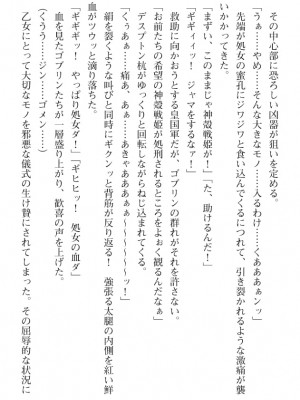 その中心部に恐ろしい凶器が狙いを定める。
「うぁ……やめ……そんな大きなモノ……入るわけ……くあああぁンッ」
先端が処女の蜜孔にジワジワと食い込んでくるにつれて、引き裂かれるような激痛が襲
いかかってきた。
「まずい、このままじゃ神殻戦姫が！」「た、助けるんだ！」
「ギギィィ！　ジャマをするなァ！」
救助に向かおうとする皇国軍だが、ゴブリンの群れがそれを許さない。
お前たちの希望の神殻戦姫が処刑されるところをよおく観るんだなぁ」
デスプトン杭がゆっくりと回転しながらねじ込まれてくる。
「くぅあぁ……痛あ、あぁ……あきゃあああぁぁ～～～～～～ッ！」
絹を裂くような叫びと同時にギクンッと背筋が反り返る！　強張る太腿の内側を紅い鮮
血がツウッと滴り落ちた。
「ギギギッ！　やっぱり処女ダ！」「ギヒヒッ！　処女の血ダ」
血を見たゴブリンたちが一層盛り上がり、歓喜の声を上げた。
（くうう……ジン……ゴメン……）
乙女にとって大切なモノを邪悪な儀式の生け贄にされてしまった。その屈辱的な状況に